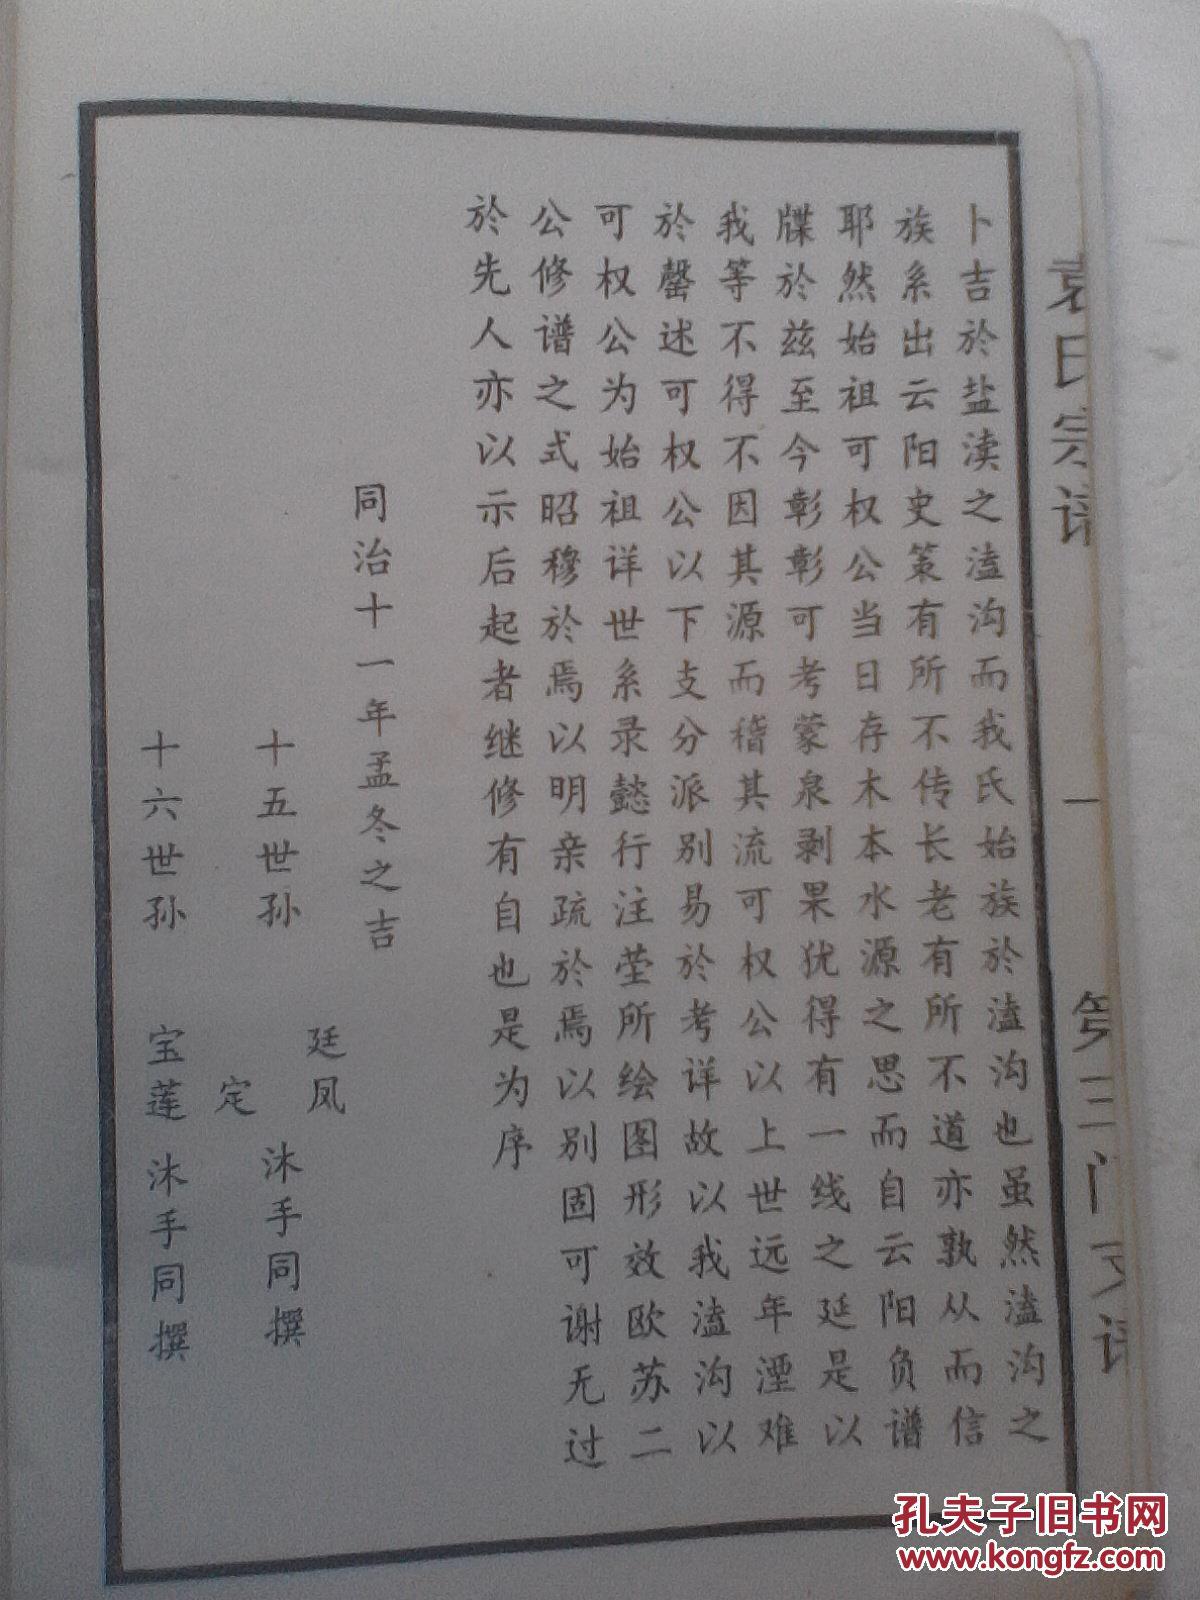 卜吉於盐渎之溘沟而我氏始族於溘沟也虽然溘沟之
族系出云阳史策有所不传长老有所不道亦孰从而信
耶然始祖可权公当日存木本水源之思而自云阳负谱
牒於兹至今彰彰可考蒙泉剥果犹得有一线之延是以
我等不得不因其源而稽其流可权公以上世远年湮难
於罄述可权公以下支分派别易於考详故以我溘沟以
可权公为始祖详世系录懿行注茔所绘图形效欧苏二
公修谱之式昭穆於焉以明亲疏於焉以别固可谢无过
於先人亦以示后起者继修有自也是为序
同治十一年孟冬之吉
十五世孙 廷凤 定 沐手同撰
十六世孙 宝莲 沐手同撰
袁氏宗谱 一 第三门支谱
孔夫子旧书网
www.kongfz.com